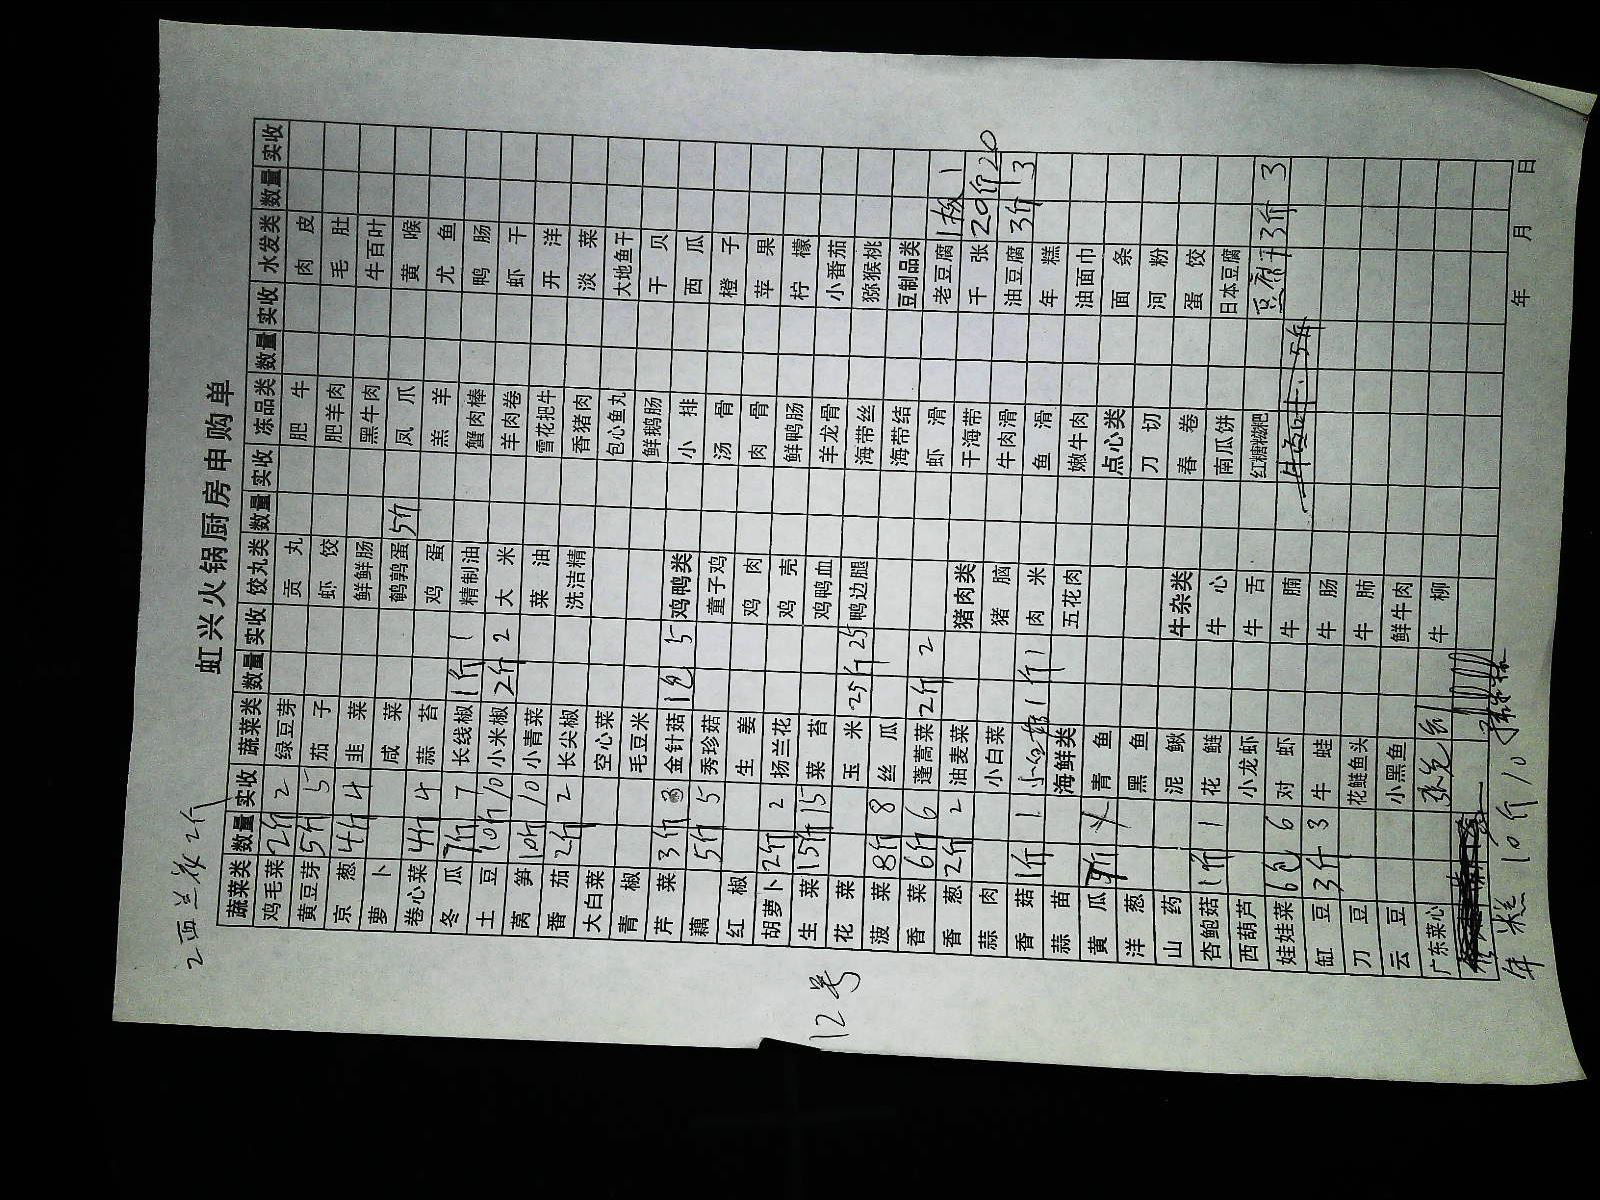 2 西兰花 2斤
虹兴火锅厨房申购单
蔬菜类 数量 实收 蔬菜类 数量 实收 饺丸类 数量 实收 冻品类 数量 实收 水发类 数量 实收
鸡毛菜 2斤 2 绿豆芽 贡丸 肥牛 肉皮
黄豆芽 5斤 5 茄子 虾饺 肥羊肉 毛肚
京葱 4斤 4 韭菜 鲜鲜肠 黑牛肉 牛百叶
萝卜 咸菜 鹌鹑蛋 5斤 凤爪 黄喉
卷心菜 4斤 4 蒜苔 鸡蛋 羔羊 尤鱼
冬瓜 7斤 7 长线椒 1斤 1 精制油 蟹肉棒 鸭肠
土豆 10斤 10 小米椒 2斤 2 大米 羊肉卷 虾干
莴笋 10斤 10 小青菜 菜油 雪花把牛 开洋
番茄 2斤 2 长尖椒 洗洁精 香猪肉 淡菜
大白菜 空心菜 包心鱼丸 大地鱼干
青椒 毛豆米 鲜鹅肠 干贝
芹菜 3斤 3 金针菇 1包 5 鸡鸭类 小排 西瓜
藕 5斤 5 秀珍菇 童子鸡 汤骨 橙子
红椒 生姜 鸡肉 肉骨 苹果
胡萝卜 2斤 2 扬兰花 鸡壳 鲜鸭肠 柠檬
生菜 15斤 15 菜苔 鸡鸭血 羊龙骨 小番茄
花菜 玉米 25斤 25 鸭边腿 海带丝 猕猴桃
菠菜 8斤 8 丝瓜 海带结 豆制品类
香菜 6斤 6 蓬蒿菜 2斤 2 虾滑 老豆腐 1板 1
香葱 2斤 2 油麦菜 猪肉类 干海带 千张 20斤 20
蒜肉 小白菜 猪脑 牛肉滑 油豆腐 3斤 3
香菇 1斤 1 1斤 1 肉米 鱼滑 年糕
蒜苗 海鲜类 五花肉 嫩牛肉 油面巾
黄瓜 青鱼 点心类 面条
洋葱 黑鱼 刀切 河粉
山药 泥鳅 牛杂类 春卷 蛋饺
杏鲍菇 1斤 1 花鲢 牛心 南瓜饼 日本豆腐
西葫芦 小龙虾 牛舌 红糖糍粑 豆腐干 3斤 3
娃娃菜 6包 6 对虾 牛腩
缸豆 3斤 3 牛蛙 牛肠
刀豆 花鲢鱼头 牛肺
云豆 小黑鱼 鲜牛肉
广东菜心 牛柳
年糕 10斤 10
年 月 日
12号